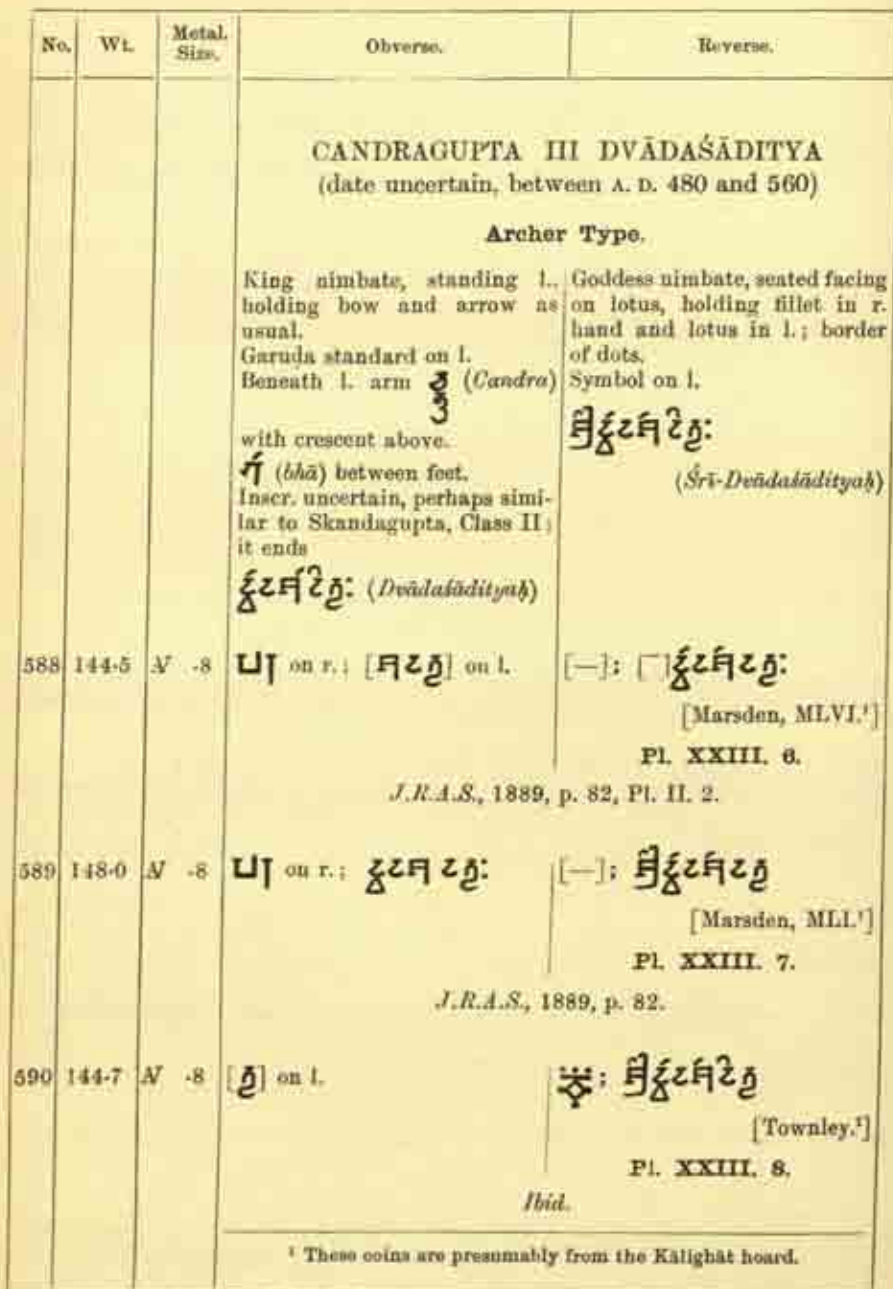 No. Wt. Metal. Size. Obverse. Reverse.
CANDRAGUPTA III DVĀDAŚĀDITYA
(date uncertain, between A. D. 480 and 560)
Archer Type.
King nimbate, standing l.,
holding bow and arrow as
usual.
Garuḍa standard on l.
Beneath l. arm (Candra)
with crescent above.
(bhā) between feet.
Inscr. uncertain, perhaps simi-
lar to Skandagupta, Class II;
it ends
(Dvādaśādityaḥ)
Goddess nimbate, seated facing
on lotus, holding fillet in r.
hand and lotus in l.; border
of dots.
Symbol on l.
(Śrī-Dvādaśādityaḥ)
588 144·5 ·8 on r.; on l. [—];
[Marsden, MLVI.¹]
Pl. XXIII. 6.
J.R.A.S., 1889, p. 82, Pl. II. 2.
589 148·0 ·8 on r.; [—];
[Marsden, MLI.¹]
Pl. XXIII. 7.
J.R.A.S., 1889, p. 82.
590 144·7 ·8 on l.
[Townley.¹]
Pl. XXIII. 8.
Ibid.
¹ These coins are presumably from the Kālīghāt hoard.